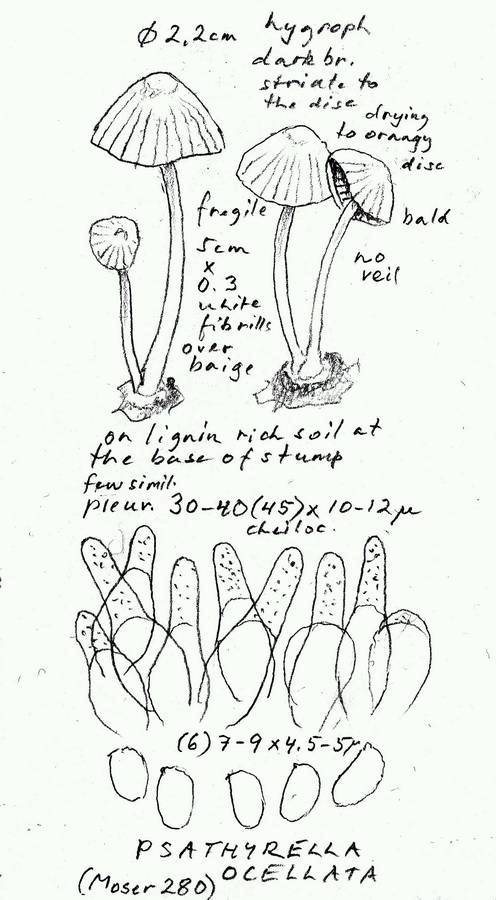 ø 2,2cm
hygroph
dark br.
striate to
the disc
drying
to orangy
disc
bald
no
veil
fregile
5cm
x
0.3
white
fibrills
over
baige
on lignin rich soil at
the base of stump
few simil.
pleur. 30-40(45)x10-12µ
cheiloc.
(6)7-9x4.5-5µ
PSATHYRELLA
OCELLATA
(Moser 280)